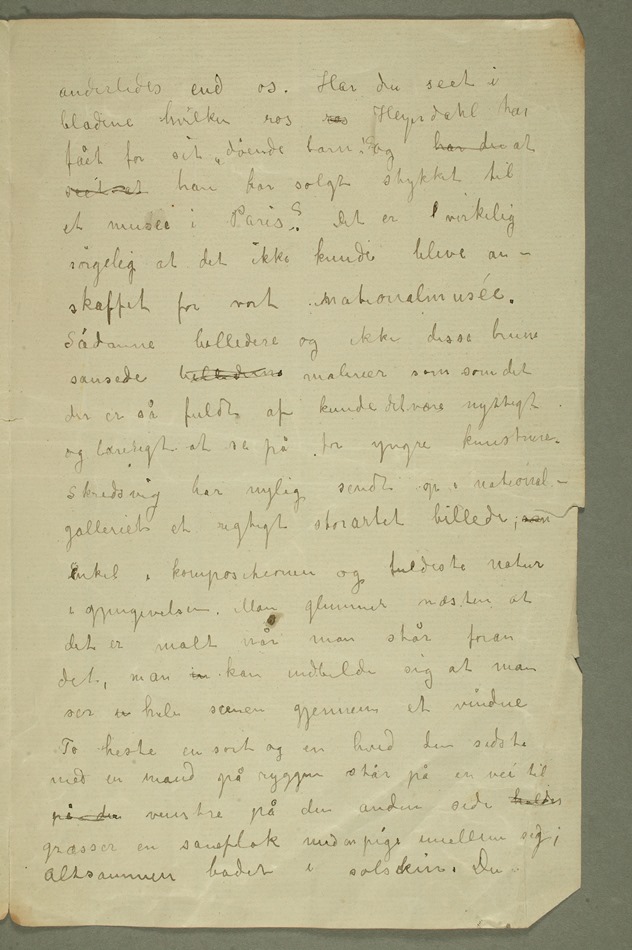 anderledes end os. Har du seet i
bladene hvilken ros ros Heyerdahl har
fået for sit „døende barn“? og har du at
seet at han har solgt stykket til
et musée i Paris? Det er virkelig
sørgelig at det ikke kunde blive an-
skaffet for vort nationalmusée.
Sådanne billedere og ikke disse brune
sausede billederne malerier som som det
der er så fuldt af kunde det være nyttigt
og lærerigt at se på for yngre kunstnere.
Skredsvig har nylig sendt op i national-
galleriet et rigtigt storartet billede; som
Enkel i kompositionen og fuldeste natur
i gjengivelsen. Man glemmer næsten at
det er malt når man står foran
det, man in kan indbilde sig at man
ser hele scenen gjennem et vindue
To heste en sort og en hvid den sidste
med en mand på ryggen står på en vei til
på den venstre på den anden side holder
græsser en saueflok med en pige imellem sig;
altsammen badet i solskin. Du